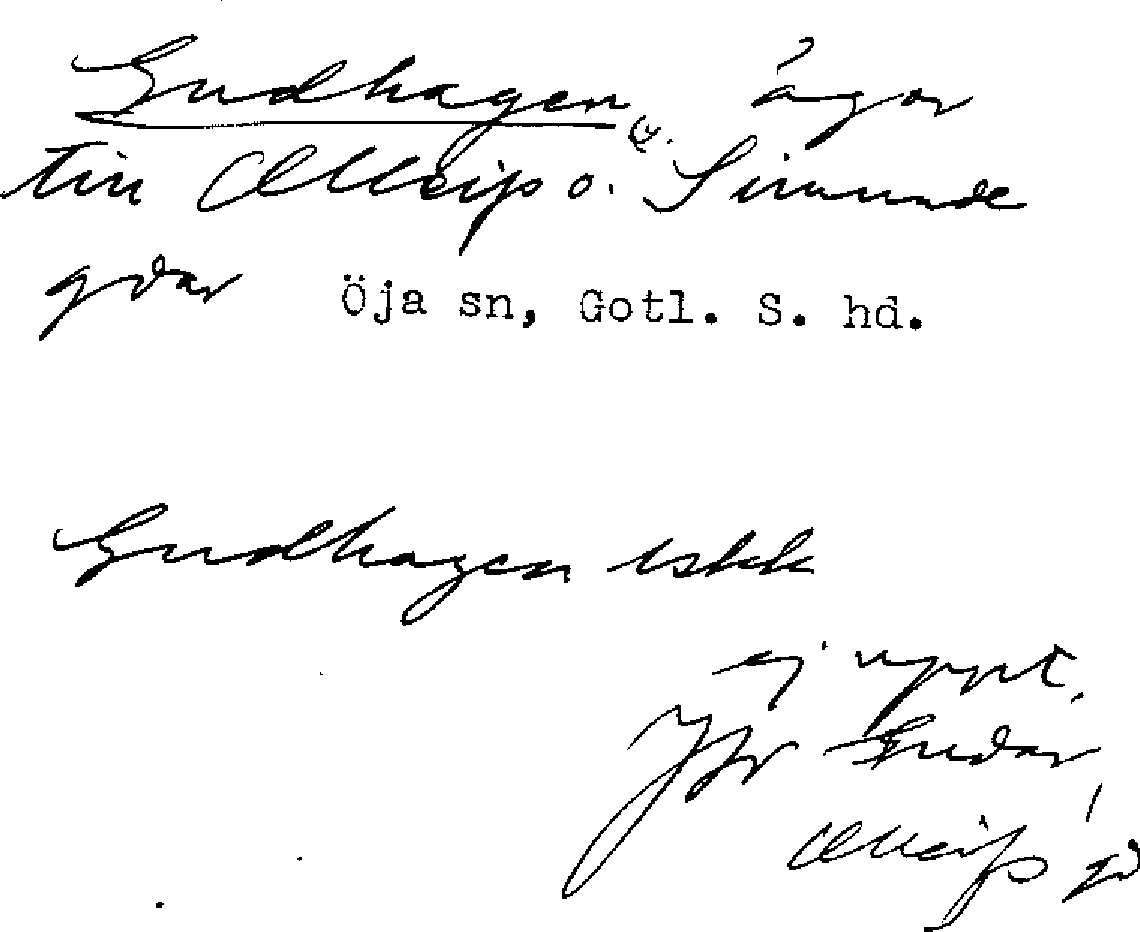 Gudhagen, ägor
till Olleifs o. Simunde
gdar Öja sn, Gotl. S. hd.
Gudhagen
ej uppt.
Jfr Gudar,
Olleifs gd